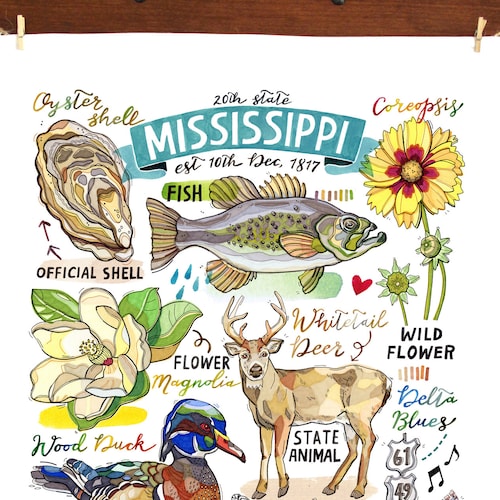 20th state
MISSISSIPPI
est 10th Dec, 1817
Oyster
shell
Coreopsis
FISH
OFFICIAL SHELL
Whitetail
Deer
WILD
FLOWER
FLOWER
Magnolia
Delta
Blues
Wood Duck
STATE
ANIMAL
61
49